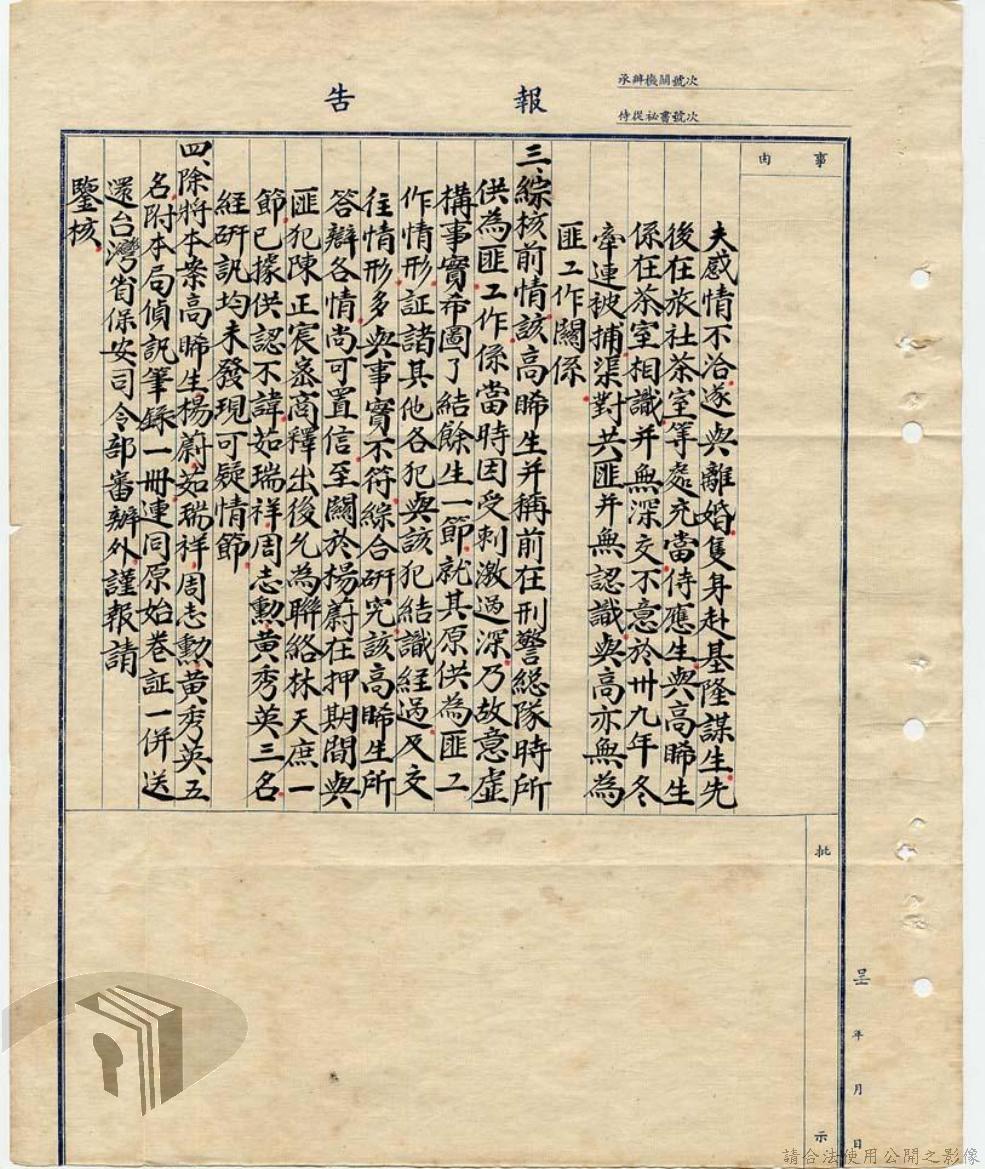 承辦機關號次
侍從祕書號次
報告
事由
夫感情不洽遂與離婚隻身赴基隆謀生先
後在旅社茶室等處充當侍應生與高晞生
係在茶室相識并無深交不意於卅九年冬
牽連被捕渠對共匪并無認識與高亦無為
匪工作關係
三、綜核前情該高晞生并稱前在刑警総隊時所
供為匪工作係當時因受刺激過深乃故意虛
構事實希圖了結餘生一節就其原供為匪工
作情形証諸其他各犯與該犯結識経過及交
往情形多與事實不符綜合研究該高晞生所
答辯各情尚可置信至關於楊蔚在押期間與
匪犯陳正宸密商釋出後允為聯絡林天庶一
節已據供認不諱茹瑞祥周志勲黄秀英三名
経研訊均未發現可疑情節
四、除將本案高晞生楊蔚茹瑞祥周志勲黄秀英五
名附本局偵訊筆録一冊連同原始巻証一併送
還台灣省保安司令部審辦外謹報請
鑒核
批示
呈 年 月 日
請合法使用公開之影像